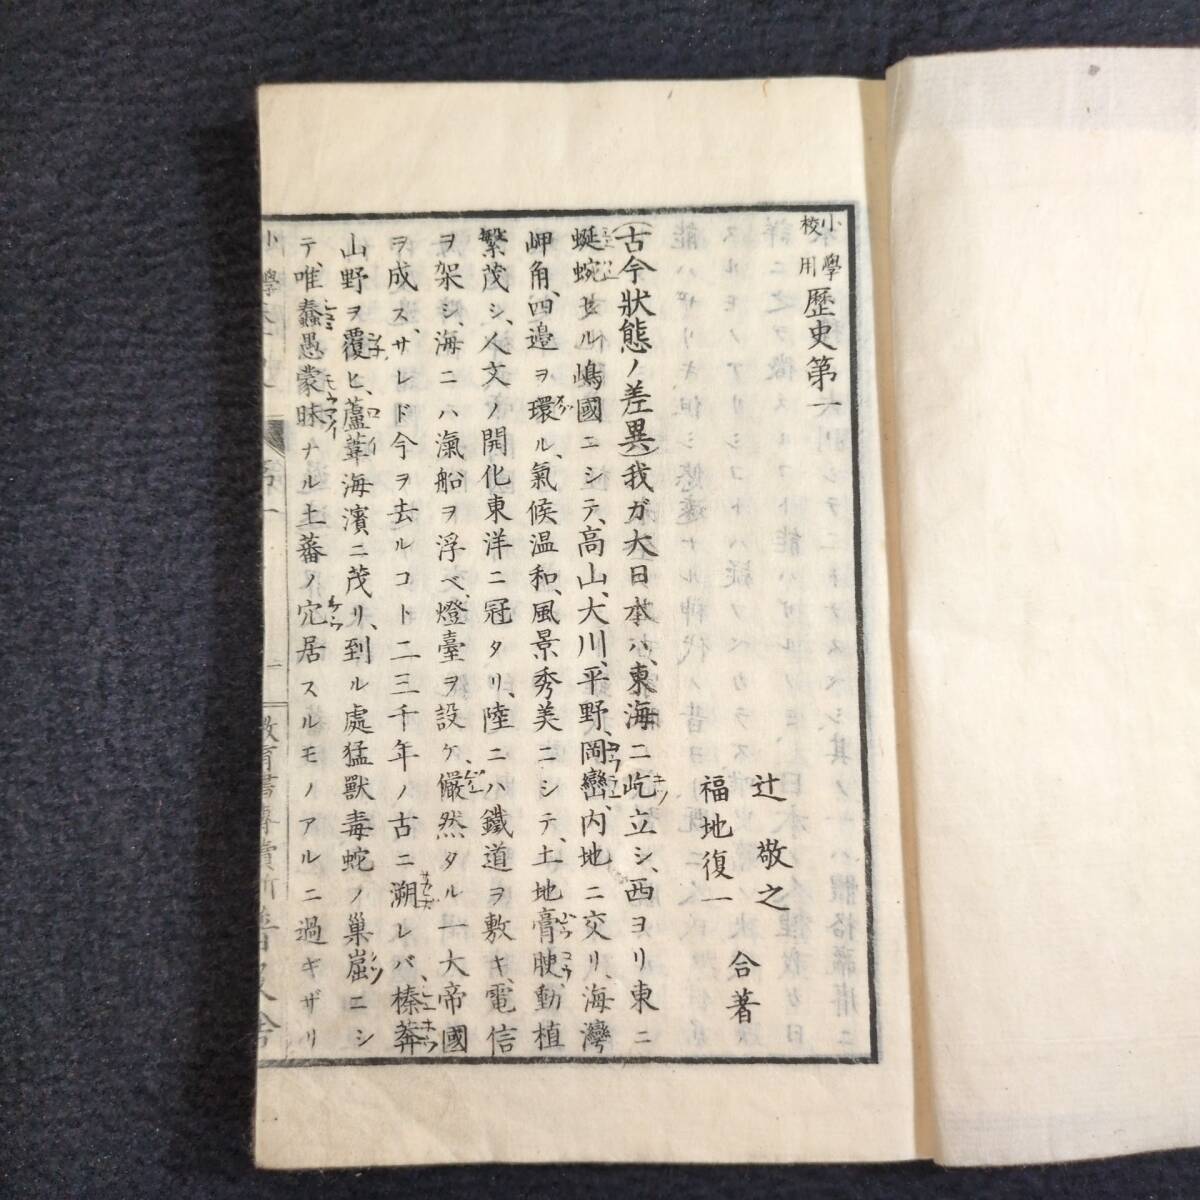 小學校用歷史第一
辻敬之
福地復一
合著
(古今狀態ノ差異)我ガ大日本ハ、東海ニ屹立シ、西ヨリ東ニ
蜒蜿セル嶋國ニシテ、高山、大川、平野、岡巒、内地ニ交リ、海灣
岬角、四邉ヲ環ル、氣候温和、風景秀美ニシテ、土地膏腴、動植
繁茂シ、人文ノ開化東洋ニ冠タリ、陸ニハ鐵道ヲ敷キ、電信
ヲ架シ、海ニハ滊船ヲ浮ベ、燈臺ヲ設ケ、儼然タル一大帝國
ヲ成ス、サレド今ヲ去ルコト二三千年ノ古ニ溯レバ、榛莽
山野ヲ覆ヒ、蘆葦海濱ニ茂リ、到ル處猛獸毒蛇ノ巢窟ニシ
テ、唯蠢愚蒙昧ナル土蕃ノ穴居スルモノアルニ過ギザリ